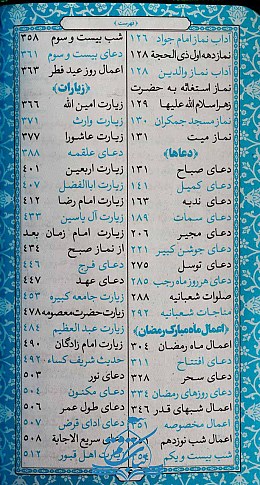 ﴿فهرست﴾
آداب نماز امام جواد ۱۲۶
نماز دهه اول ذی الحجة ۱۲۸
آداب نماز والدین ۱۲۸
نماز استغاثه به حضرت
زهرا سلام الله علیها ۱۲۹
نماز مسجد جمکران ۱۳۰
نماز میت ۱۳۱
﴿دعاها﴾
دعای صباح ۱۳۱
دعای کمیل ۱۴۱
دعای ندبه ۱۶۳
دعای سمات ۱۸۹
دعای مجیر ۲۰۶
دعای جوشن کبیر ۲۲۱
دعای توسل ۲۷۵
دعای هر روز ماه رجب ۲۸۵
صلوات شعبانیه ۲۸۸
مناجات شعبانیه ۲۹۲
﴿اعمال ماه مبارک رمضان﴾
اعمال ماه رمضان ۳۰۴
دعای افتتاح ۳۱۱
دعای سحر ۳۲۸
دعای روزهای رمضان ۳۳۴
اعمال شبهای قدر ۳۴۶
اعمال مخصوصه ۳۵۱
اعمال شب نوزدهم
شب بیست و یکم
شب بیست و سوم ۳۵۸
دعای بیست و سوم ۳۶۱
اعمال روز عید فطر ۳۶۳
﴿زیارات﴾
زیارت امین الله ۳۶۶
زیارت وارث ۳۷۱
زیارت عاشورا ۳۷۷
دعای علقمه ۳۸۸
زیارت اربعین ۴۰۱
زیارت اباالفضل ۴۰۷
زیارت امام رضا ۴۱۲
زیارت آل یاسین ۴۳۳
زیارت امام زمان بعد
از نماز صبح ۴۳۴
دعای فرج ۴۴۶
دعای عهد ۴۴۷
زیارت جامعه کبیره ۴۵۳
زیارت حضرت معصومه ۴۷۸
زیارت عبدالعظیم ۴۸۴
زیارت امام زادگان ۴۹۰
حدیث شریف کساء ۴۹۲
دعای نور ۵۰۳
دعای مکنون ۵۰۴
دعای طول عمر ۵۰۶
دعای ادای قرض ۵۰۷
سریع الاجابة ۵۰۸
زیارت اهل قبور ۵۱۲